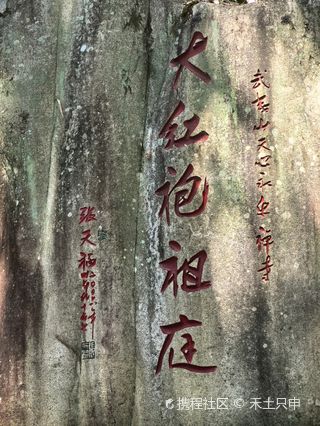 武夷山天心永乐禅寺
大红袍祖庭
张天福
携程社区 © 禾土只申